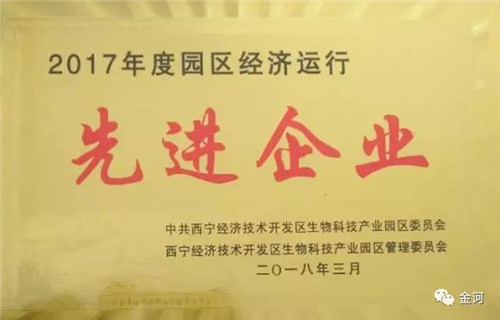 2017年度园区经济运行
先进企业
中共西宁经济技术开发区生物科技产业园区委员会
西宁经济技术开发区生物科技产业园区管理委员会
二〇一八年三月
金诃